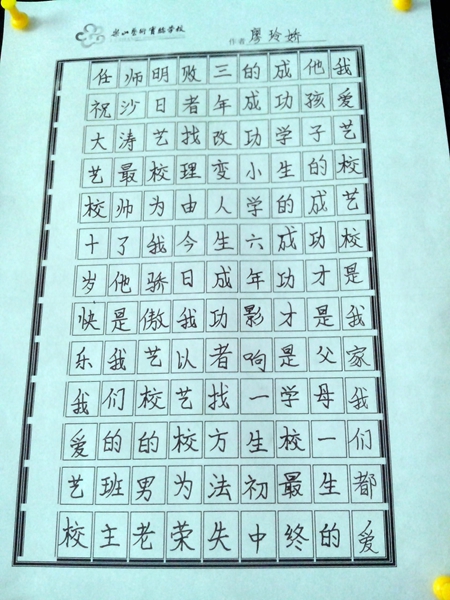 樂山藝術實驗学校
作者 廖玲娇
我爱艺校艺校是我家我们都爱
他孩子的成功才是父母一生的
成功学生的成功才是学校最终
的成功小学六年影响一生初中
三年改变人生成功者找方法失
败者找理由今日我以艺校为荣
明日艺校为我骄傲艺校的男老
师沙涛最帅了他是我们的班主
任祝大艺校十岁快乐我爱艺校